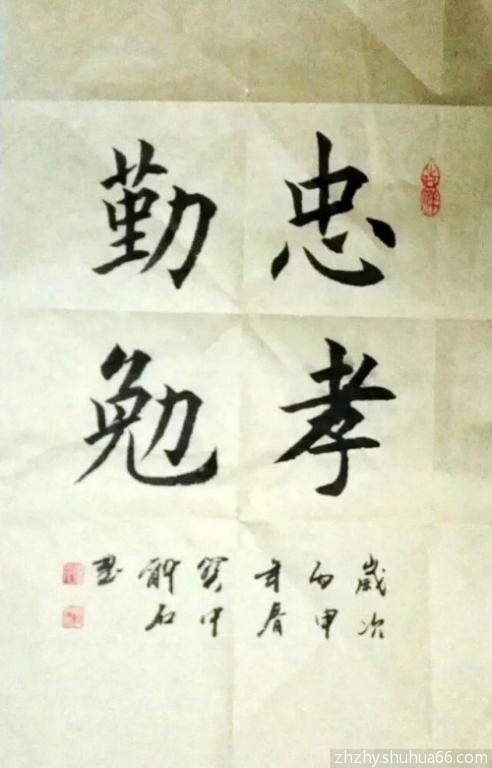 忠孝
勤勉
歲次
丙申
年春
解石
zhzhy.shuhua66.com